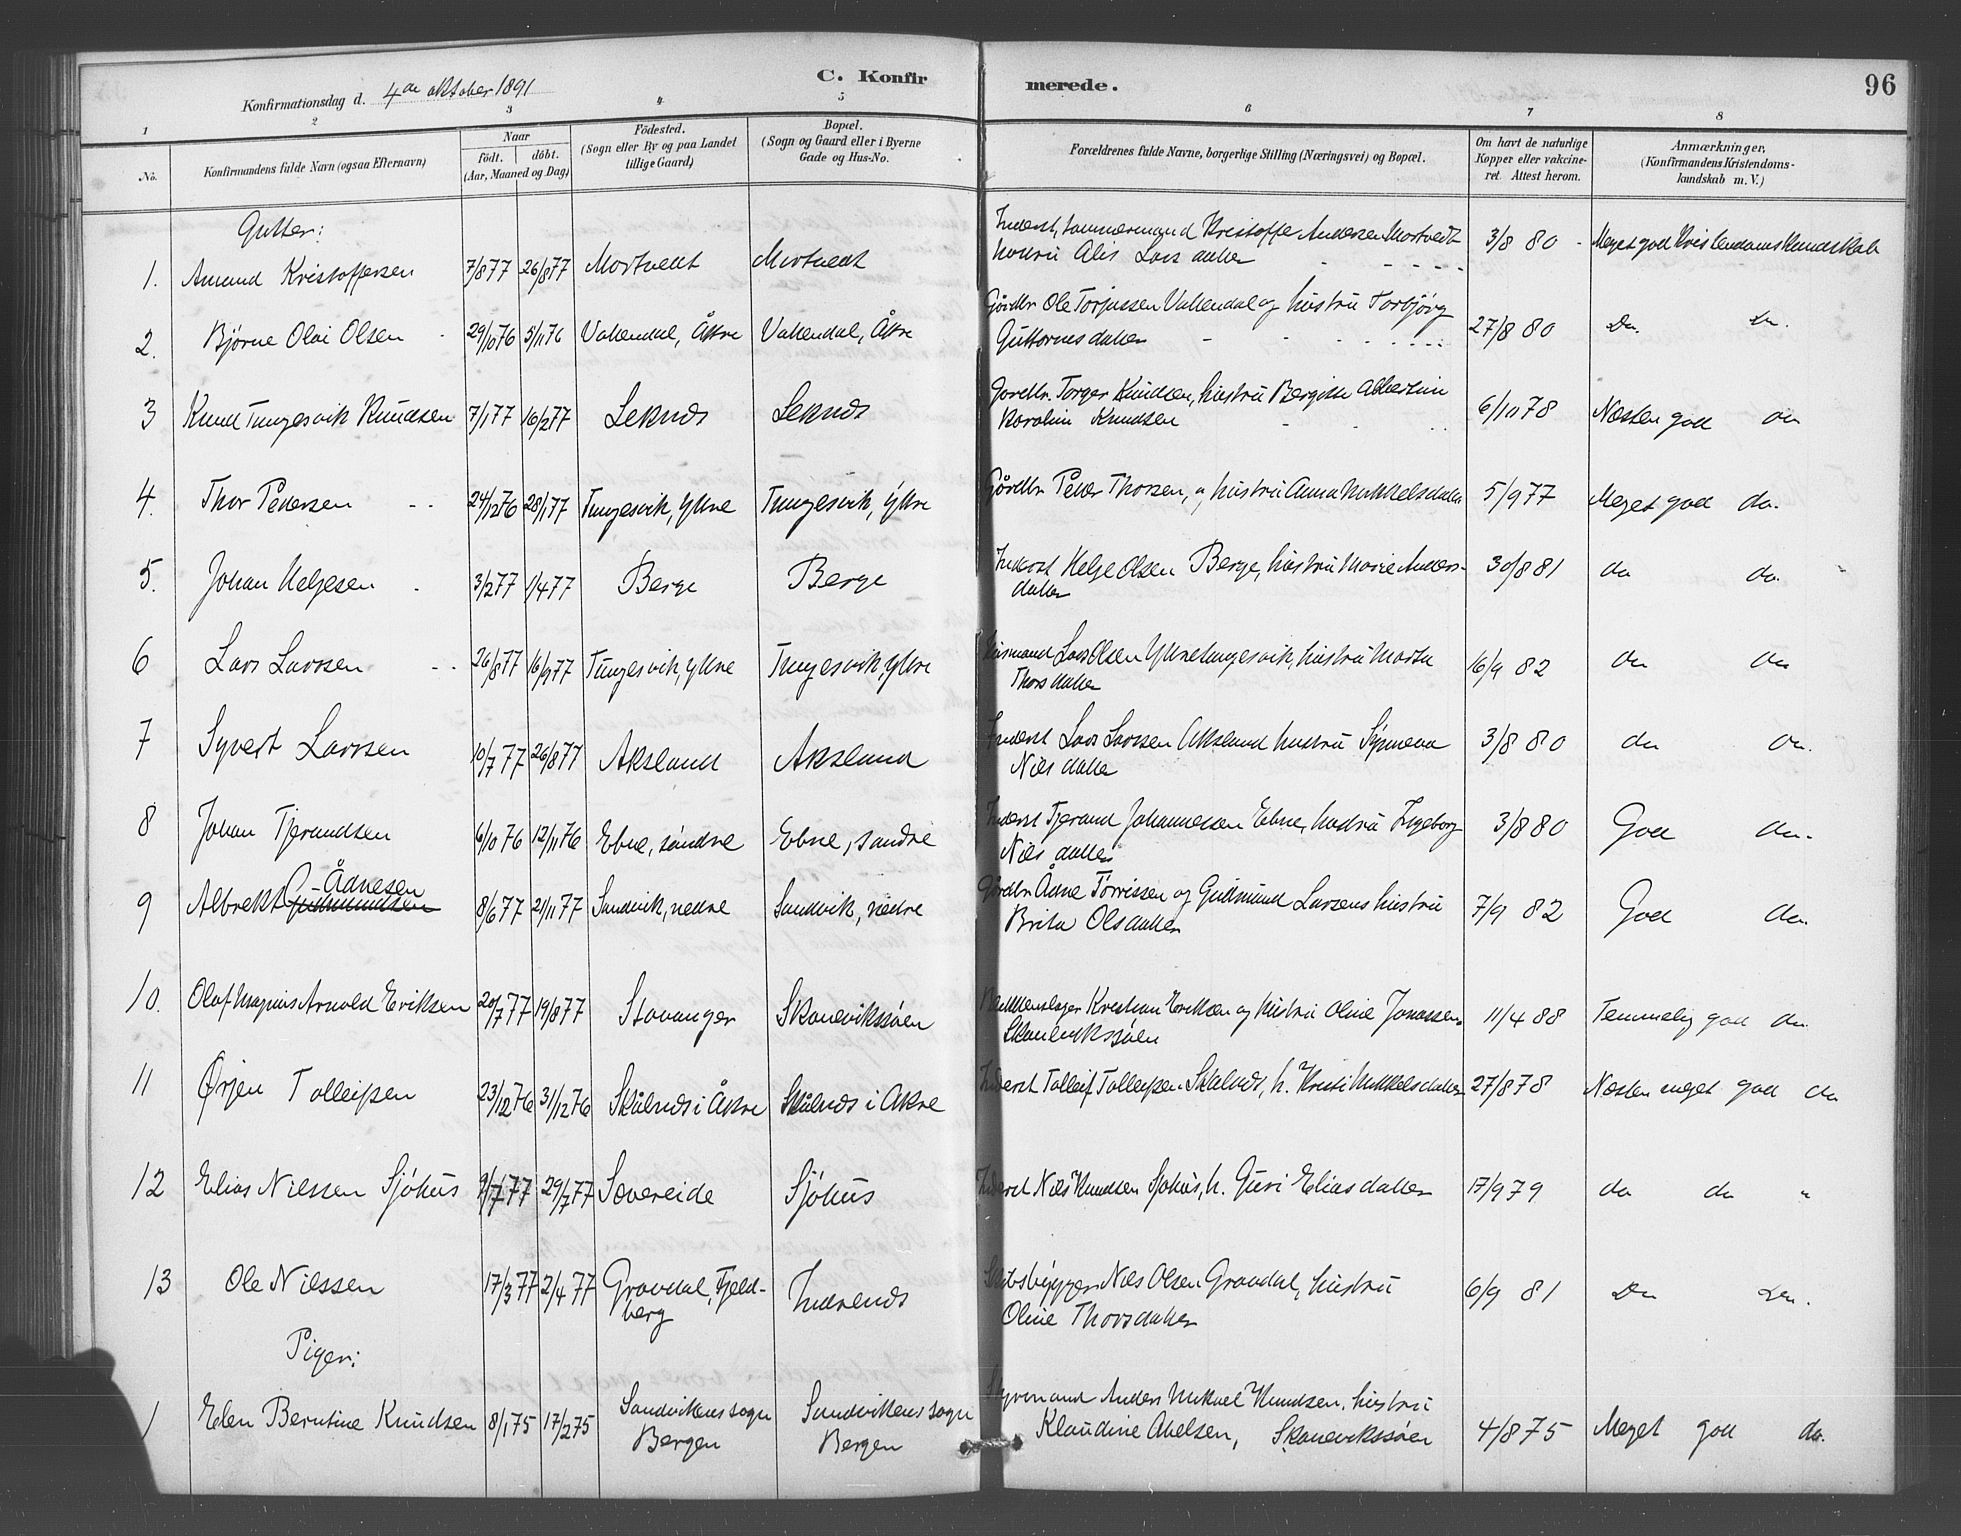 C. Konfirmerede. 96
Konfirmationsdag d. 4de oktober 1891
1 2 3 4 5 6 7 8
No. Konfirmandens fulde Navn (ogsaa Efternavn) Naar födt. döbt. (Aar, Maaned og Dag) Födested. (Sogn eller By og paa Landet tillige Gaard) Bopæl. (Sogn og Gaard eller i Byerne Gade og Hus-No. Forældrenes fulde Navne, borgerlige Stilling (Næringsvei) og Bopæl. Om havt de naturlige Kopper eller vakcineret. Attest herom. Anmærkninger, (Konfirmandens Kristendomskundskab m. V.)
Gutter:
1. Amund Kristoffersen 7/8 77 26/8 77 Mortvedt Mortvedt Inderst, tømmermand Kristoffer Andersen Mortvedt 3/8 80 Meget god Kristendomskundskab
hustru Alis Larsdatter
2. Bjørne Olai Olsen 29/10 76 5/11 76 Vattendal, Åkre Vattendal, Åkre Gårdbr Ole Torjussen Vattendal og hustru Torbjørg 27/8 80 Do. Do.
Guttormsdatter
3 Knud Tungesvik Knudsen 7/1 77 16/2 77 Leknes Leknes Gårdbr. Torger Knudsen, hustru Bergitte Albertine 6/11 78 Næsten god do
Karoline Knudsen
4. Thor Pedersen 24/12 76 28/1 77 Tungesvik, Ytre Tungesvik, Ytre Gårdbr Peder Thorsen, og hustru Anna Mikkelsdatter 5/9 77 Meget god do.
5. Johan Helgesen 3/2 77 1/4 77 Berge Berge Inderst Helge Olsen Berge, hustru Marie Anders- 30/8 81 do do.
datter
6 Lars Larsen 26/8 77 16/9 77 Tungesvik, Ytre Tungesvik, Ytre Husmand Lars Olsen Ytretungesvik, hustru Marta 16/9 82 do do
Thorsdatter
7 Syvert Larsen 10/7 77 26/8 77 Aksland Aksland Inderst Lars Larssen Aksland hustru Synneva 3/8 80 do do.
Nilsdatter
8 Johan Tjerandsen 6/10 76 12/11 76 Ebne, søndre Ebne, søndre Inderst Tjerand Johannessen Ebne, hustru Ingeborg 3/8 80 God do.
Nilsdatter
9 Albrekt Gudmundsen Ådnesen 8/6 77 21/11 77 Sandvik, nedre Sandvik, nedre Gårdbr Ådne Torrissen og Gudmund Larsens hustru 7/9 82 God do.
Brita Olsdatter
10. Olaf Magnus Arnold Eriksen 20/7 77 19/8 77 Stavanger Skånevikssøen Kristian Eriksen og hustru Oline Jonassen. 11/4 88 Temmelig god do.
Skånevikssjøen
11 Ørjen Tolleifsen 23/12 76 31/12 76 Skålnes i Åkre Skålnes i Åkre Inderst Tolleif Tolleifsen Skålnes, h. Kristi Mikkelsdatter 27/8 78 Næsten meget god do
12 Elias Nilssen Sjöhus 9/7 77 29/7 77 Sævereide Sjöhus Inderst Nils Knudsen Sjöhus, h. Guri Eliasdatter 17/9 79 do do "
13 Ole Nilssen 17/3 77 2/4 77 Gravdal, Fjeldberg Indrenes Skibsbygger Nils Olsen Gravdal, hustru 6/9 81 Do Do.
Oline Thorsdatter
Piger:
1 Elen Berntine Knudsen 8/1 75 17/2 75 Sandvikens sogn Bergen Sandvikens sogn Bergen Styrmand Anders Mikael Knudsen, hustru
Klaudine Abelsen, Skånevikssøen 4/8 75 Meget god do.